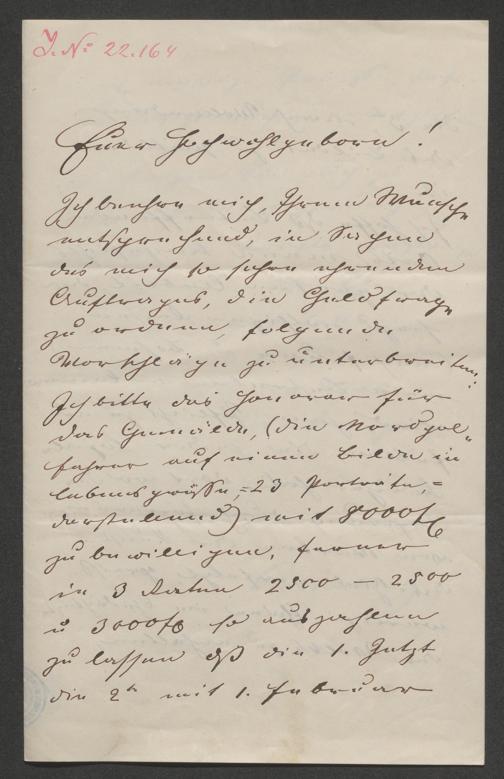 J. No 22.164
Euer Hochwohlgeborn!
Ich beehre mich, Ihrem Wunsche
entsprechend, in Sachen
des mich so sehr ehrenden
Auftrages, die Geldfrage
zu ordnen, folgende
Vorschläge zu unterbreiten:
Ich bitte das Honorar für
das Gemälde, (die Nordpol"
fahrer auf einem Bilde in
lebensgrösse, = 23 Porträte, =
darstellend) mit 8000 fl
zu bewilligen, ferner
in 3 Raten 2500 — 2500
u 3000 fl so auszahlen
zu lassen dß die 1. Jetzt
die 2te mit 1. Februar